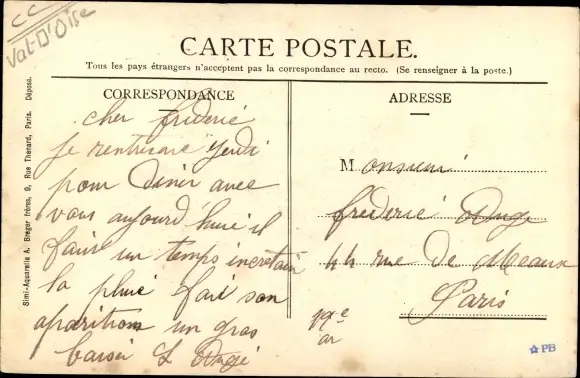 CC
Val-D'Oise
CARTE POSTALE.
Tous les pays étrangers n'acceptent pas la correspondance au recto. (Se renseigner à la poste.)
CORRESPONDANCE
cher frederic
Je rentrerai Jeudi
pour diner avec
vous aujourd'huie il
faire un temps incertain
la pluie fait son
aparition un gros
baiser L Angé
ADRESSE
Monsieur
frederic Ange
44 rue De Meaux
Paris
19e
ar
Simi-Aquarelle A. Breger frères, 9, Rue Thenard, Paris. Déposé.
PB